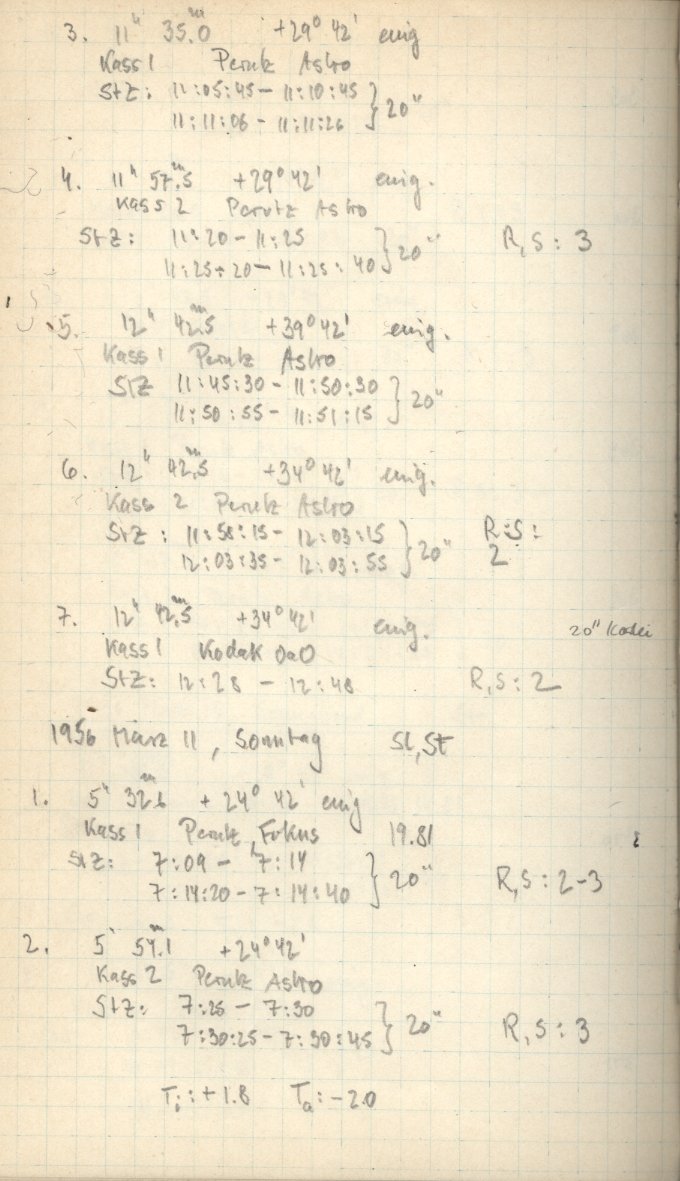 3. 11ʰ 35ᵐ.0 +29° 42' ewig
Kass 1 Perutz Astro
StZ: 11:05:45 - 11:10:45 } 20"
11:11:06 - 11:11:26
4. 11ʰ 57ᵐ.5 +29° 42' ewig.
Kass 2 Perutz Astro
StZ: 11:20 - 11:25 } 20" R, S: 3
11:25:20 - 11:25:40
5. 12ʰ 42ᵐ.5 +39° 42' ewig.
Kass 1 Perutz Astro
StZ 11:45:30 - 11:50:30 } 20"
11:50:55 - 11:51:15
6. 12ʰ 42ᵐ.5 +34° 42' ewig.
Kass 2 Perutz Astro
StZ: 11:58:15 - 12:03:15 } 20" R:S:
12:03:35 - 12:03:55 2
7. 12ʰ 42ᵐ.5 +34° 42' ewig. 20"
Kass 1 Kodak OaO
StZ: 12:28 - 12:48 R, S: 2
1956 März 11, Sonntag Sl, St
1. 5ʰ 32ᵐ.6 +24° 42' ewig
Kass 1 Perutz, Fokus 19.81
StZ: 7:09 - 7:14 } 20" R, S: 2-3
7:14:20 - 7:14:40
2. 5ʰ 54ᵐ.1 +24° 42'
Kass 2 Perutz Astro
StZ: 7:25 - 7:30 } 20" R, S: 3
7:30:25 - 7:30:45
Tᵢ: +1.8 Tₐ: -2.0